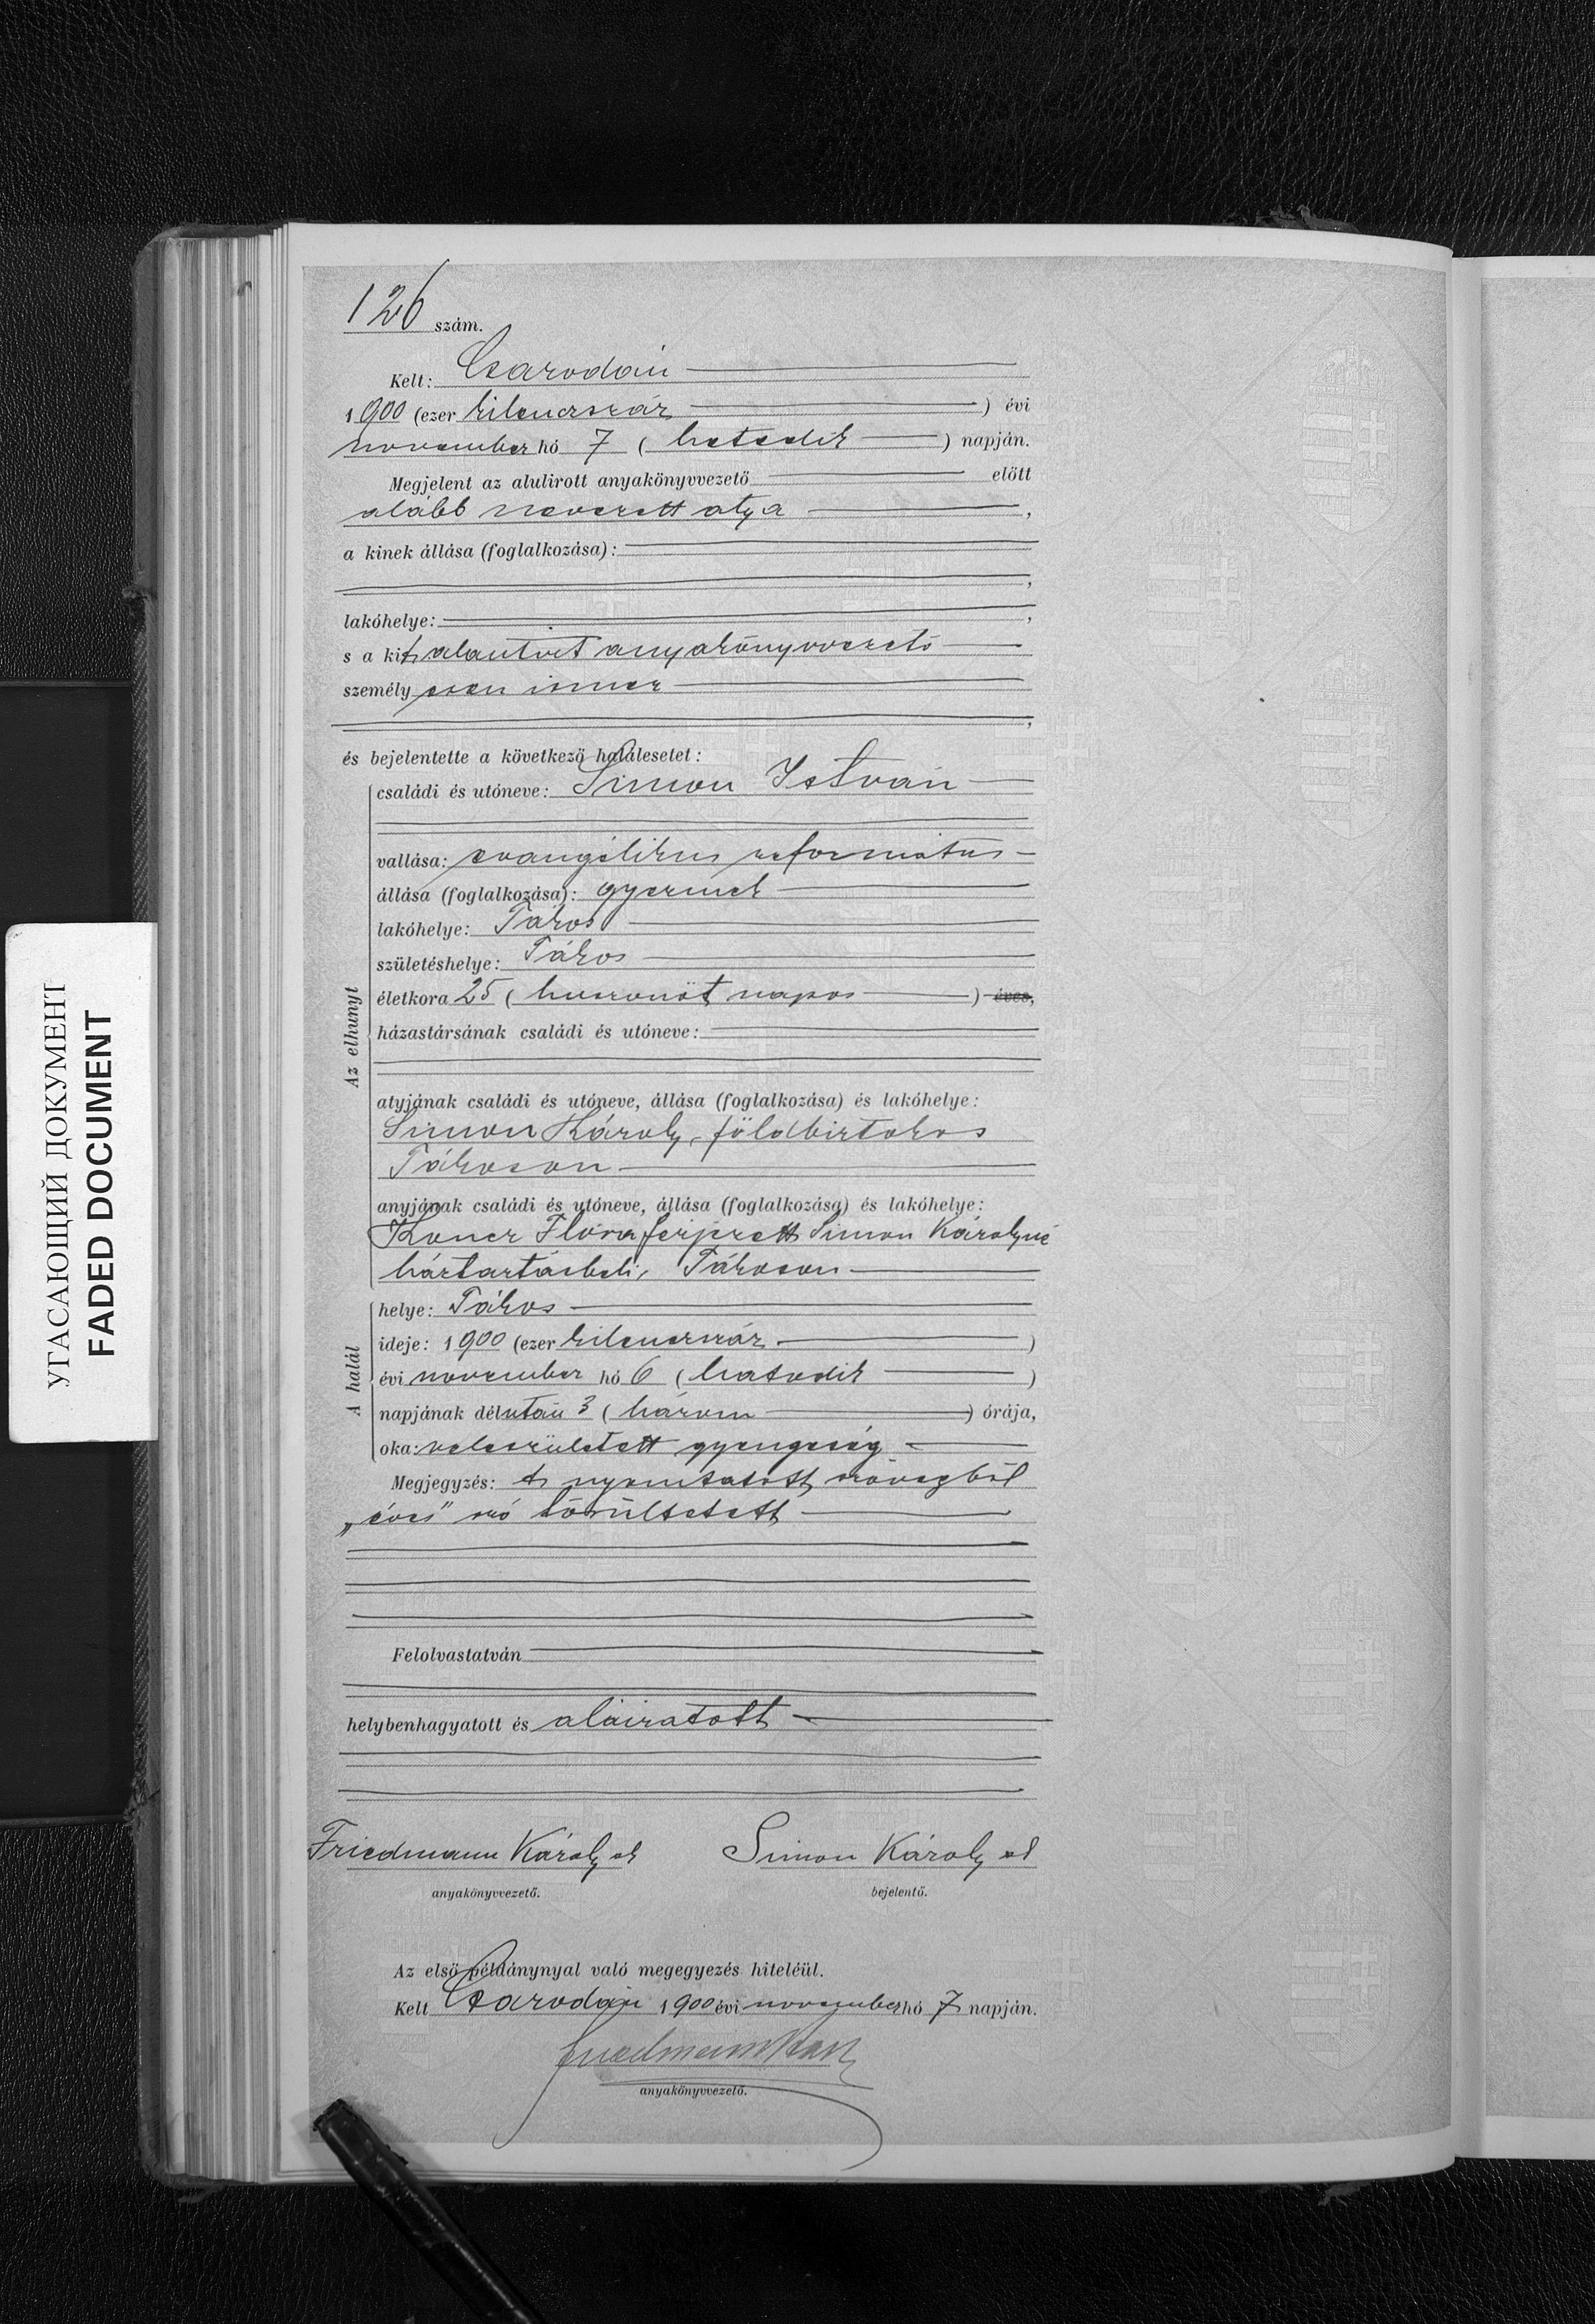 126 szám.
Kelt: Csarodán
1900 (ezer kilencszáz) évi
november hó 7 (hetedik) napján.
Megjelent az alulirott anyakönyvvezető előtt
alább nevezett atya,
a kinek állása (foglalkozása):
,
lakóhelye: ,
s a kit alantirt anyakönyvvezető
személyesen ismer
,
és bejelentette a következő halálesetet:
Az elhunyt
családi és utóneve: Simon István
vallása: evangélikus református
állása (foglalkozása): gyermek
lakóhelye: Tákos
születéshelye: Tákos
életkora 25 (huszonöt napos) éves,
házastársának családi és utóneve:
atyjának családi és utóneve, állása (foglalkozása) és lakóhelye:
Simon Károly, földbirtokos
Tákoson
anyjának családi és utóneve, állása (foglalkozása) és lakóhelye:
Flóra férjezett Simon Károlyné
háztartásbeli, Tákoson
A halál
helye: Tákos
ideje: 1900 (ezer kilencszáz)
évi november hó 6 (hatodik)
napjának délután 3 (három) órája,
oka: veleszületett gyengeség
Megjegyzés: A nyomtatott szövegből
„éves" szó töröltetett
Felolvastatván
helybenhagyatott és aláiratott
Friedmann Károly sk Simon Károly sk
anyakönyvvezető. bejelentő.
Az első példánynyal való megegyezés hiteléül.
Kelt Csarodán 1900 évi november hó 7 napján.
Friedmann Károly
anyakönyvvezető.
УГАСАЮЩИЙ ДОКУМЕНТ
FADED DOCUMENT